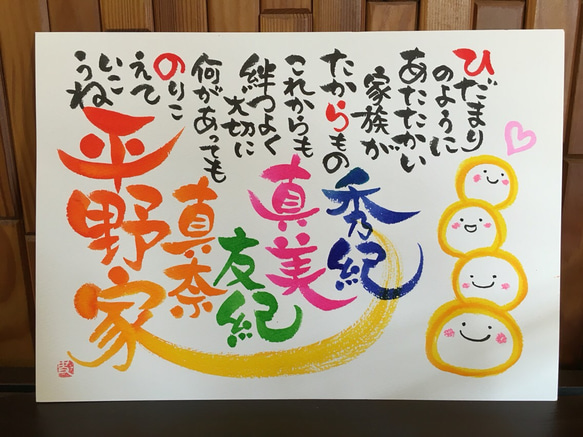 ひだまり
のように
あたたかい
家族が
たからもの
これからも
絆つよく
大切に
何があっても
のりこ
えて
いこ
うね
秀紀
真美
友紀
真奈
平野家